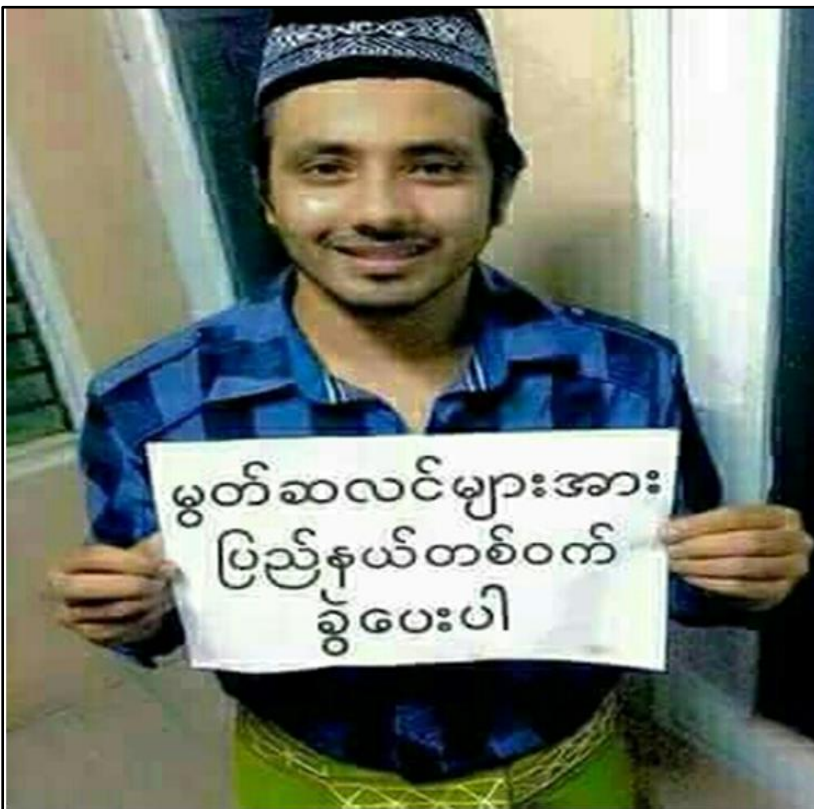 မွတ်ဆလင်များအား
ပြည်နယ်တစ်ဝက်
ခွဲပေးပါ